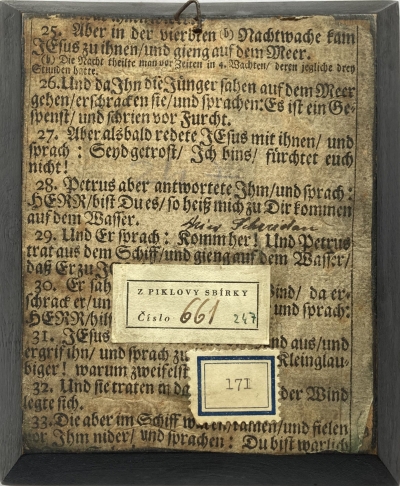 25. Aber in der vierdten (b) Nachtwache kam
JEsus zu ihnen/ und gieng auf dem Meer.
(b) Die Nacht theilte man vor Zeiten in 4. Wachten/ deren jegliche drey
Stunden hatte.
26. Und da Ihn die Jünger sahen auf dem Meer
gehen/ erschracken sie/ und sprachen: Es ist ein Ge-
spenst/ und schrien vor Furcht.
27. Aber alsbald redete JEsus mit ihnen/ und
sprach: Seyd getrost/ Ich bins/ fürchtet euch
nicht!
28. Petrus aber antwortete Ihm/ und sprach:
HERR/ bist Du es/ so heiß mich zu Dir kommen
auf dem Wasser.
29. Und Er sprach: Komm her! Und Petrus
trat aus dem Schiff/ und gieng auf dem Wasser/
daß Er zu
30. Er sah Wind/ da er-
schrack er/ und sprach:
HERR/ hilf
31. JEsus aus/ und
ergrif ihn/ und sprach zu Kleinglau-
biger! warum zweifelst
32. Und sie traten in der Wind
legte sich.
33. Die aber im Schiff und fielen
vor Ihm nider/ und sprachen: Du bist warlich
Z PIKLOVY SBÍRKY
Číslo 661 247
171